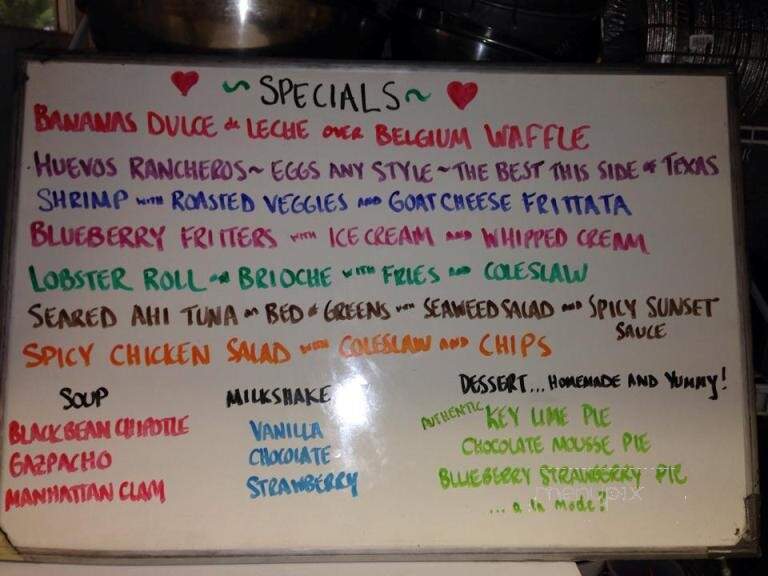 ~ SPECIALS ~
BANANAS DULCE de LECHE OVER BELGIUM WAFFLE
HUEVOS RANCHEROS ~ EGGS ANY STYLE ~ THE BEST THIS SIDE OF TEXAS
SHRIMP WITH ROASTED VEGGIES AND GOAT CHEESE FRITTATA
BLUEBERRY FRITTERS WITH ICE CREAM AND WHIPPED CREAM
LOBSTER ROLL ON BRIOCHE WITH FRIES AND COLESLAW
SEARED AHI TUNA ON BED OF GREENS WITH SEAWEED SALAD AND SPICY SUNSET
SAUCE
SPICY CHICKEN SALAD WITH COLESLAW AND CHIPS
SOUP
BLACK BEAN CHIPOTLE
GAZPACHO
MANHATTAN CLAM
MILKSHAKE
VANILLA
CHOCOLATE
STRAWBERRY
DESSERT... HOMEMADE AND YUMMY!
AUTHENTIC KEY LIME PIE
CHOCOLATE MOUSSE PIE
BLUEBERRY STRAWBERRY PIE
... a la mode?
menupix